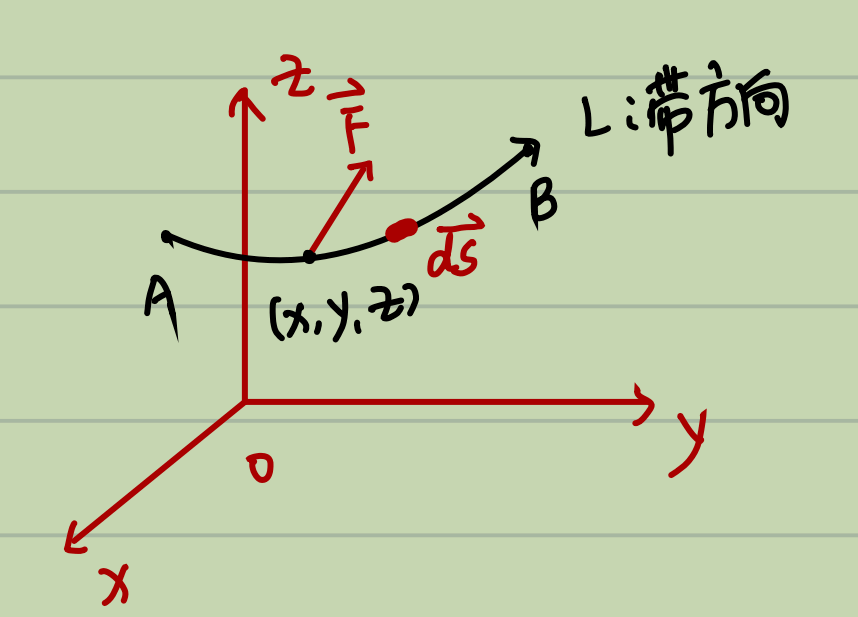 z
F⃗
L:带方向
B
d⃗s
A
(x,y,z)
y
0
x